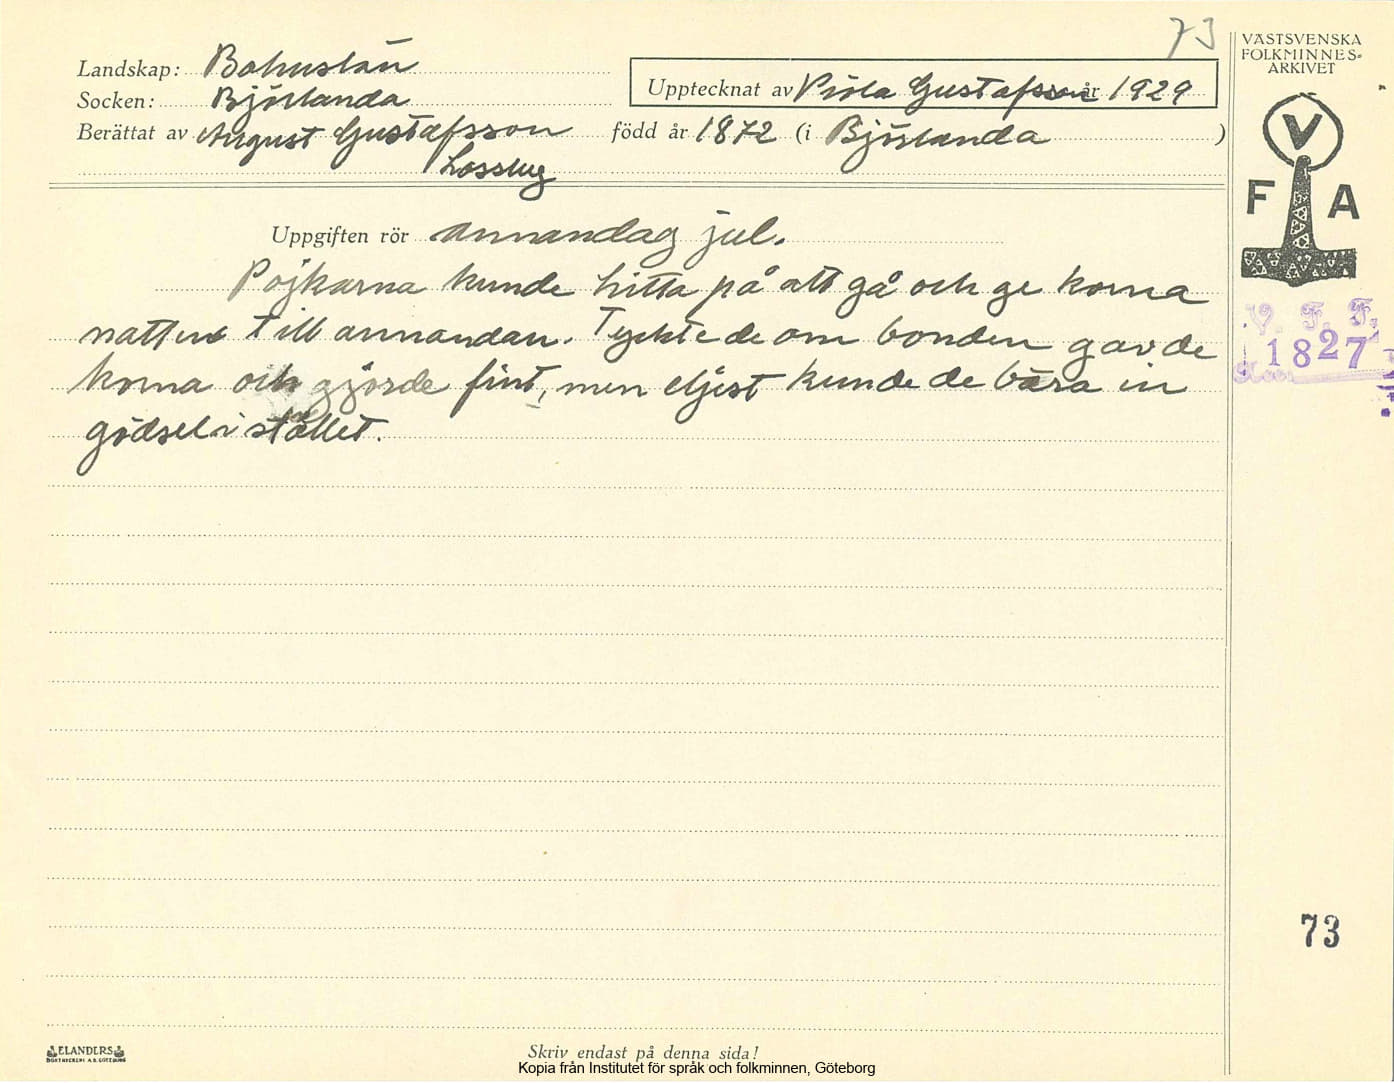 73
VÄSTSVENSKA
FOLKMINNES-
ARKIVET
Landskap: Bohuslän
Socken: Björlanda
Upptecknat av Viola Gustafsson år 1929
Berättat av August Gustafsson född år 1872 (i Björlanda)
V
F A
Uppgiften rör annandag jul.
Pojkarna kunde hitta på att gå och ge korna
natten till annandan. Tyckte de om bonden gav de
korna och gjorde fint, men eljest kunde de bära in
gödsel i stället.
V. F. F.
1827
73
ELANDERS
BOKTRYCKERI A.B. GÖTEBORG
Skriv endast på denna sida!
Kopia från Institutet för språk och folkminnen, Göteborg